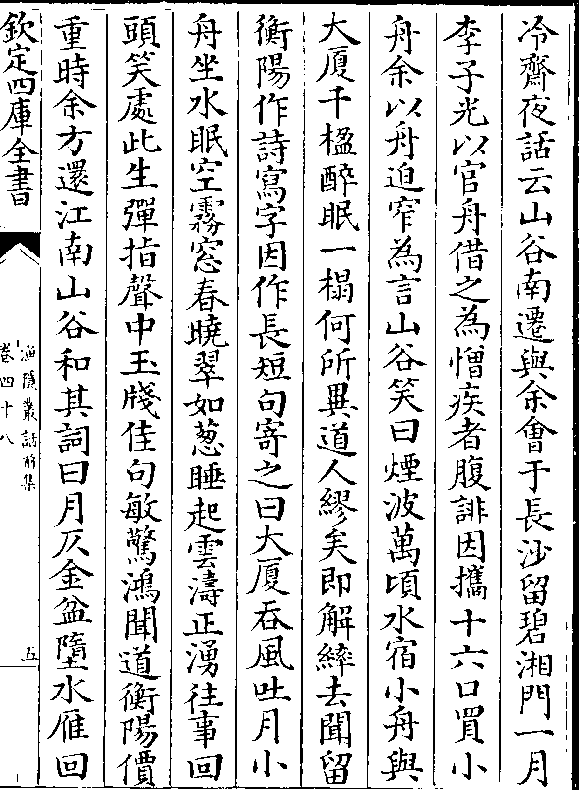 冷齋夜話云山谷南遷與余會于長沙留碧湘門一月
李子光以官舟借之為憎疾者腹誹因攜十六口買小
舟余以舟迫窄為言山谷笑曰煙波萬頃水宿小舟與
大厦千楹醉眠一榻何所異道人繆矣即解繂去聞留
衡陽作詩寫字因作長短句寄之曰大厦吞風吐月小
舟坐水眠空霧窓春曉翠如葱睡起雲濤正湧往事回
頭笑處此生彈指聲中玉牋佳句敏驚鴻聞道衡陽價
重時余方還江南山谷和其詞曰月仄金盆墮水雁回
欽定四庫全書
漁隱叢話前集
卷四十八
五